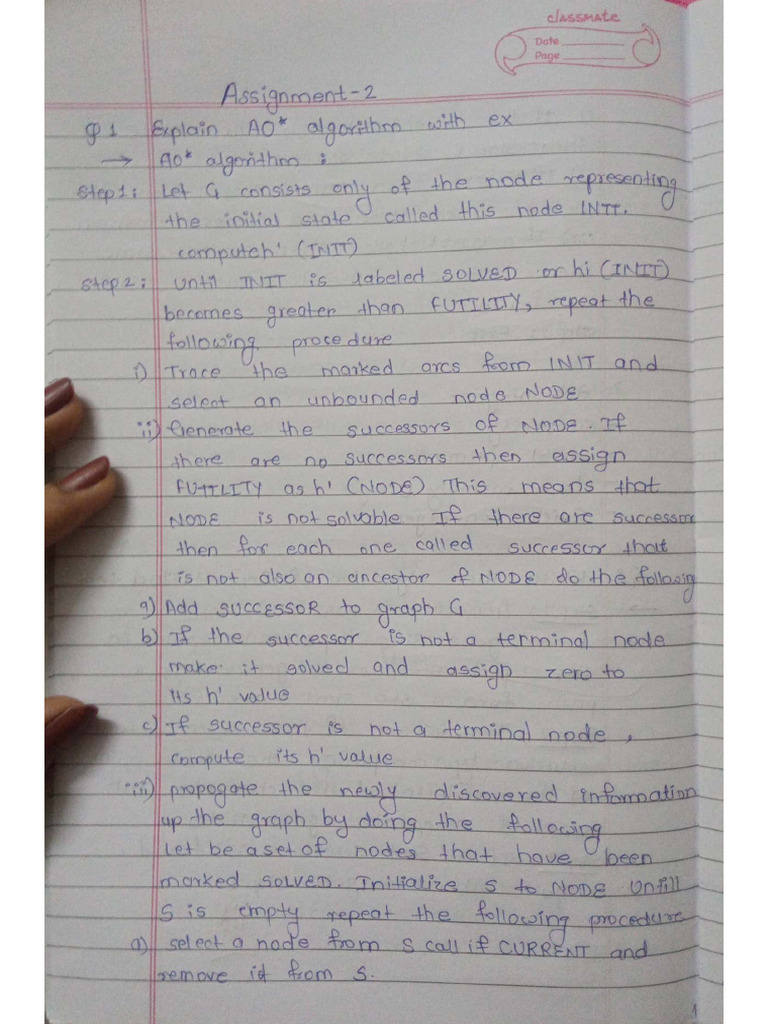 classmate
Date
Page
Assignment-2
Q1 Explain AO* algorithm with ex
→ AO* algorithm :
Step1: Let G consists only of the node representing
the initial state called this node INIT.
compute h' (INIT)
Step2: Until INIT is labeled SOLVED or hi (INIT)
becomes greater than FUTILITY, repeat the
following procedure
i) Trace the marked arcs from INIT and
select an unbounded node NODE
ii) Generate the successors of NODE. If
there are no successors then assign
FUTILITY as h' (NODE) This means that
NODE is not solvable If there are successor
then for each one called successor that
is not also an ancestor of NODE do the followig
a) Add SUCCESSOR to graph G
b) If the successor is not a terminal node
make it solved and assign zero to
its h' value
c) If successor is not a terminal node ,
compute its h' value
iii) propogate the newly discovered information
up the graph by doing the following
Let be a set of nodes that have been
marked SOLVED. Initialize S to NODE Untill
S is empty repeat the following procedure
a) select a node from S call if CURRENT and
remove it from S.
1